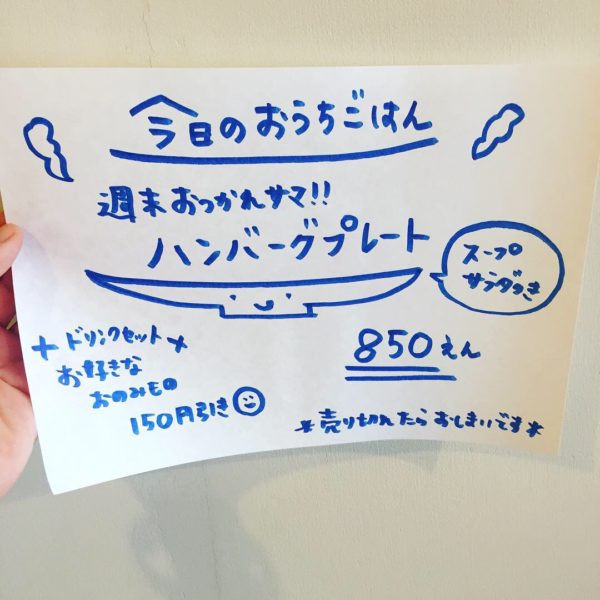 今日のおうちごはん
週末おつかれサマ!!
ハンバーグプレート
スープ
サラダつき
850えん
+ドリンクセット+
お好きな
おのみもの
150円引き
*売り切れたらおしまいです*